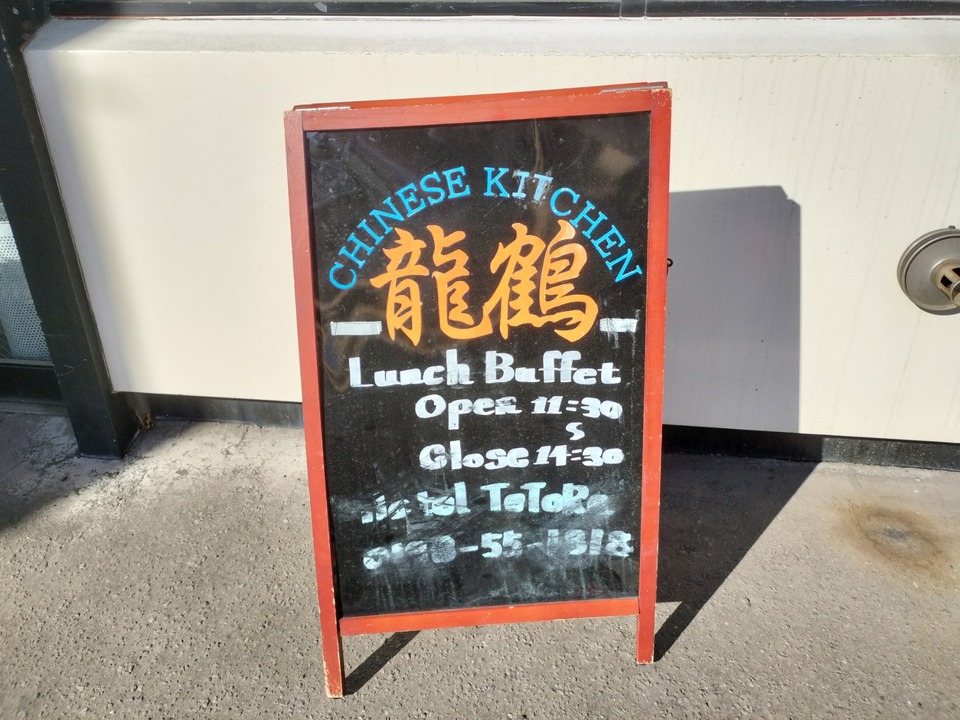 CHINESE KITCHEN
龍鶴
Lunch Buffet
Open 11:30
S
Close 14:30
ToToRo
-55-1318